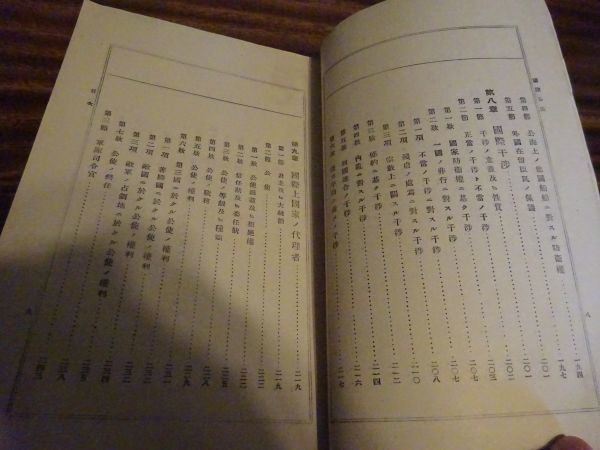 第四節 公海上ノ意國船舶ニ對スル防衞權 一九四
第五節 外國在留臣民ノ保護 一九七
第八章 國際干渉 二〇一
第一節 干渉ノ意義及ヒ性質 二〇一
第二節 正當ノ干渉ト不當ノ干渉 二〇三
第一款 國家防衞權ニ基ク干渉 二〇七
第二款 一國ノ非行ニ對スル干渉 二〇八
第一項 不當ノ干渉ニ對スル干渉 二一〇
第二項 殘虐ノ處爲ニ對スル干渉 二一二
第三款 宗教上ニ關スル干渉
第四款 內亂ニ對スル干渉 二一四
第五款 二一六
第六款 二一七
第九章 國際上國家ノ代理者 二一九
第一節 君主及ヒ大統領 二一九
第二節 公使 二二二
第一款 公使派遣及ヒ拒絕權 二二二
第二款 信任狀及ヒ委任狀
第三款 公使ノ等級及ヒ種類 二二五
第四款 公使ノ職務 二二八
第五款 公使ノ權利 二二九
第六款 第三國ニ於ケル公使ノ權利
第一項 善隣國ニ於ケル公使ノ權利 二三一
第二項 敵國ニ於ケル公使ノ權利 二三二
第三項 敵軍ノ占領地ニ於ケル公使ノ權利 二三四
第七款 公使ノ終任 二三九
第三節 軍隊司令官 二四三
目次
八
九